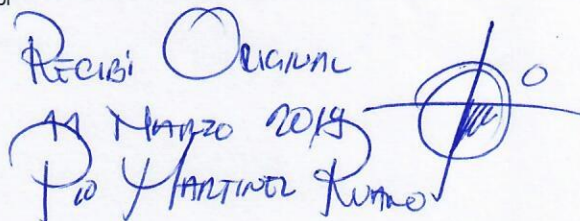 Recibí Original
11 Marzo 2019
Pio Martinez Ruano